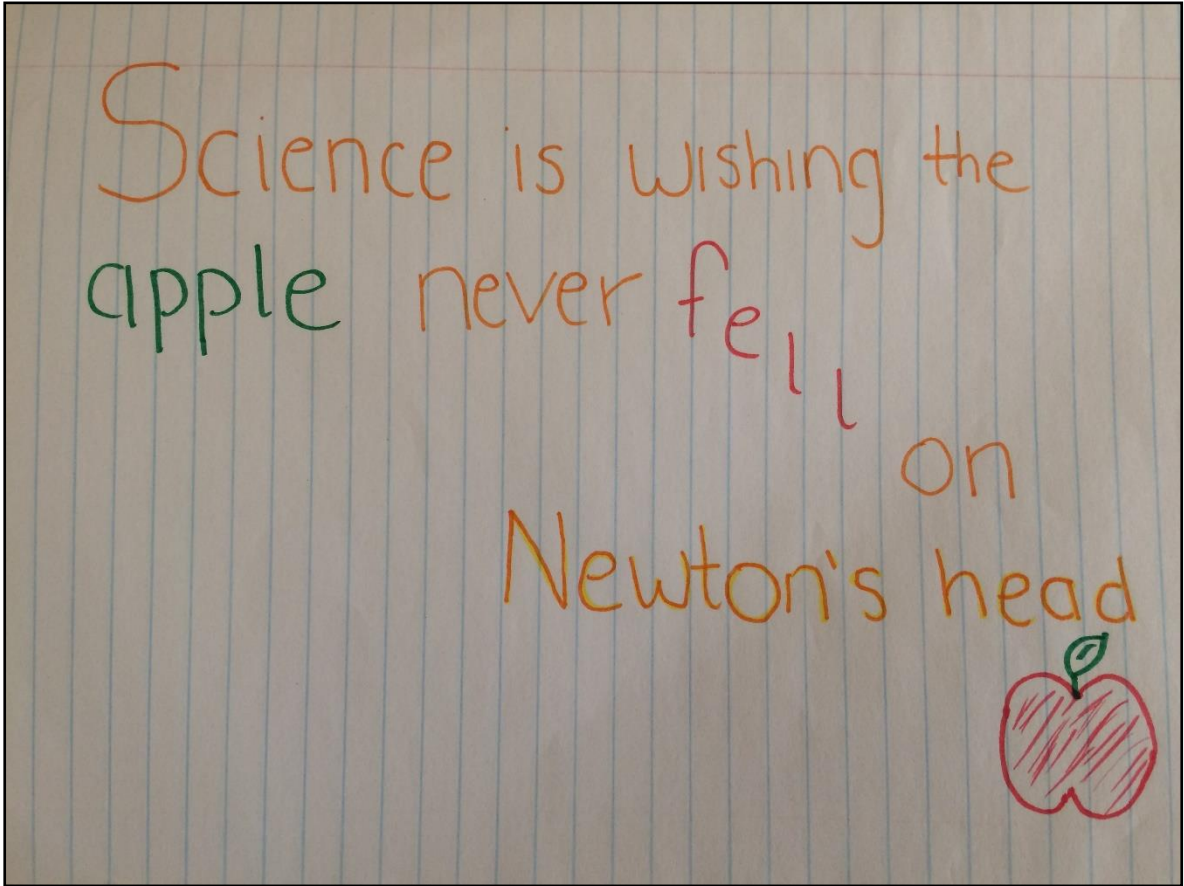 Science is wishing the
apple never fell
on
Newton's head